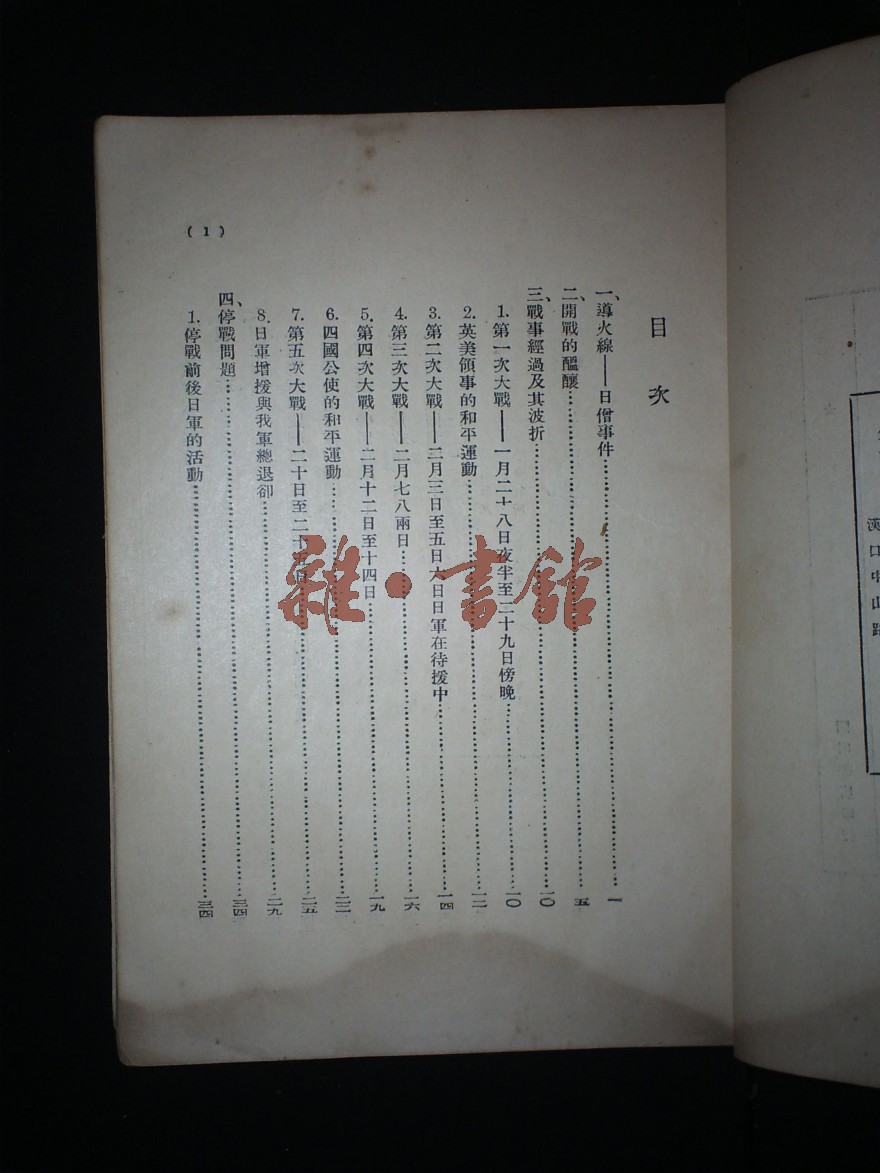 目次
一、導火線——日僧事件……一
二、開戰的醞釀……五
三、戰事經過及其波折……一〇
1. 第一次大戰——一月二十八日夜半至二十九日傍晚……一〇
2. 英美領事的和平運動……一二
3. 第二次大戰——二月三日至五日六日日軍在待援中……一四
4. 第三次大戰——二月七八兩日……一六
5. 第四次大戰——二月十二日至十四日……一九
6. 四國公使的和平運動……二二
7. 第五次大戰——二十日至二十五日……二五
8. 日軍增援與我軍總退卻……二九
四、停戰問題……三四
1. 停戰前後日軍的活動……三四
( 1 )
雜·書館
漢口中山路